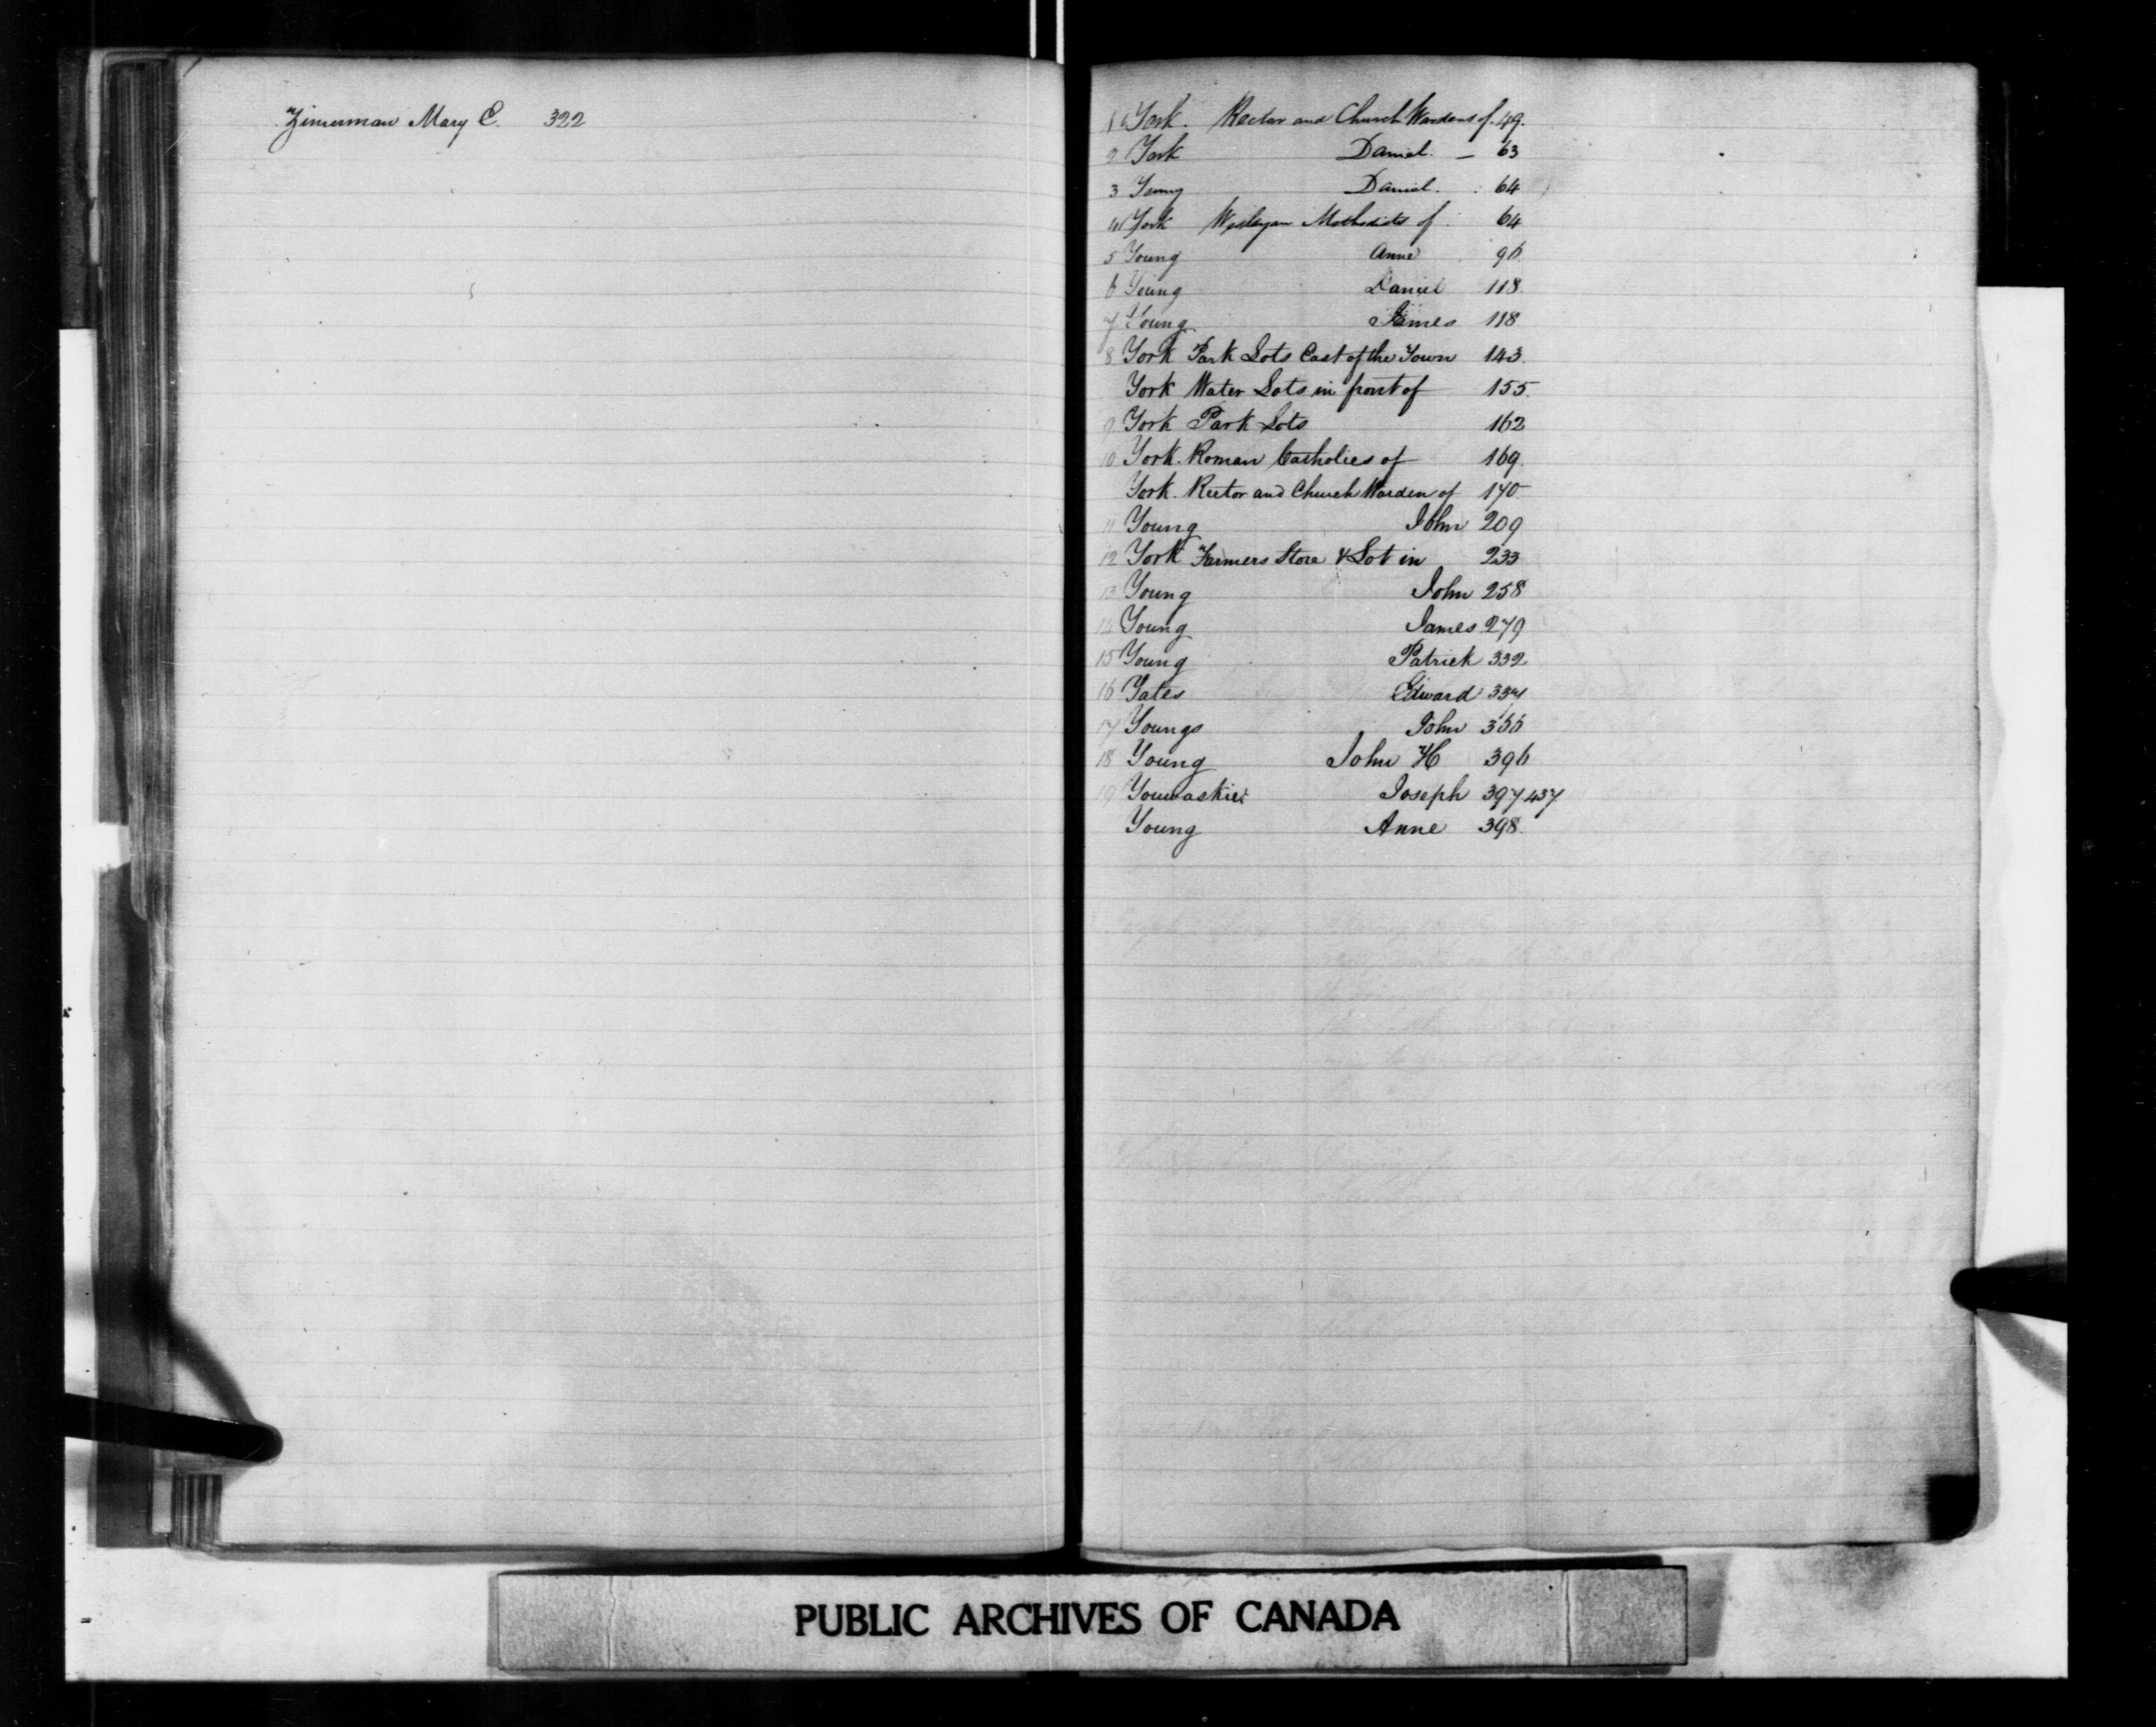 Zimerman Mary C. 322
1 York. Rector and Church Wardens of. 49.
2 York Daniel. — 63
3 Young Daniel. 64
4 York Wesleyan Methodists of 64
5 Young Anne 96
6 Young Daniel 118
7 Young James 118
8 York Park Lots East of the Town 143.
York Water Lots in front of 155.
9 York Park Lots 162
10 York. Roman Catholics of 169.
York. Rector and Church Warden of 170
11 Young John 209
12 York Farmers Store & Lot in 233
13 Young John 258
14 Young James 279
15 Young Patrick 332
16 Yates Edward 334
17 Youngs John 366
18 Young John H 396
19 Joseph 397 437
Young Anne 398.
PUBLIC ARCHIVES OF CANADA